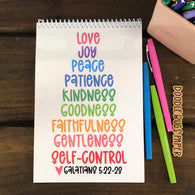 LOVE
JOY
PEACE
PATIENCE
KINDNESS
GOODNESS
FAITHFULNESS
GENTLENESS
SELF-CONTROL
GALATIANS 5:22-23